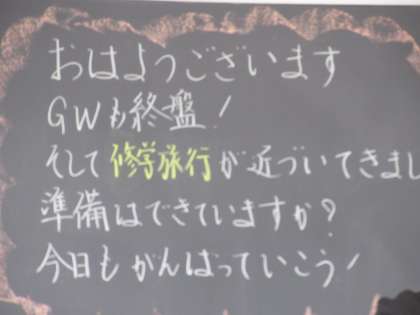 おはようございます
GWも終盤!
そして修学旅行が近づいてきまし
準備はできていますか?
今日もがんばっていこう!